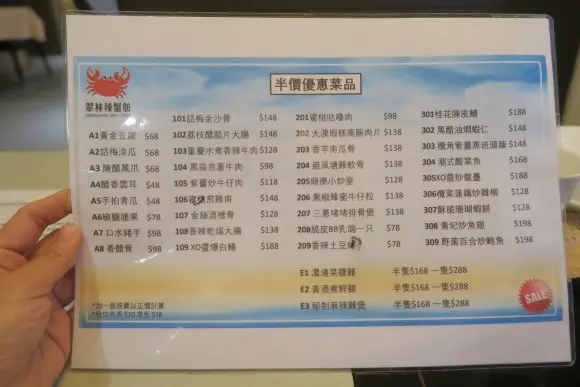 半價優惠菜品
翠林辣蟹舫
A1黃金豆腐 $68
A2話梅涼瓜 $68
A3 陳醋鳳爪 $68
A4醋香雲耳 $48
A5手拍青瓜 $48
A6椒鹽 $78
A7 口水雞 $98
A8 香醋骨 $98
101話梅金沙骨 $148
102荔枝醋腩片大腸 $148
103重慶水煮香辣牛肉 $128
104 黑蒜京蔥牛肉 $98
105 紫薑炒牛仔肉 $118
106蜜 $148
107 金絲 $128
108香辣乾煸大腸 $138
109 XO醬爆白鱔 $188
201蜜桃咕嚕肉 $98
202 大漢蝦糕蒸豚肉片 $138
203 香芋南瓜骨 $138
204 避風塘雞軟骨 $138
205順德小炒皇 $128
206 黑椒蜂蜜牛仔粒 $138
207 三蔥啫啫排骨煲 $138
208脆皮BB乳鴿一只 $78
209香辣土豆絲 $78
301桂花陳皮鱔 $188
302 黑醋油焗蝦仁 $148
303 欖角紫薑蒸班頭腩 $148
304 潮式酸菜魚 $168
305XO醬炒龍躉 $188
306欖菜蓮藕炒雞柳 $128
307酥脆珊瑚蝦餅 $128
308 貴妃炒魚翅 $198
309 野菌百合炒鮑魚 $198
E1 濃湯菜膽雞 半隻$168 一隻$288
E2 黃酒煮鮮雞 半隻$168 一隻$288
E3 秘制麻辣雞煲 半隻$168 一隻$288
SALE
*加一服務費以正價計算
*每位名茶 $10 芥危 $18